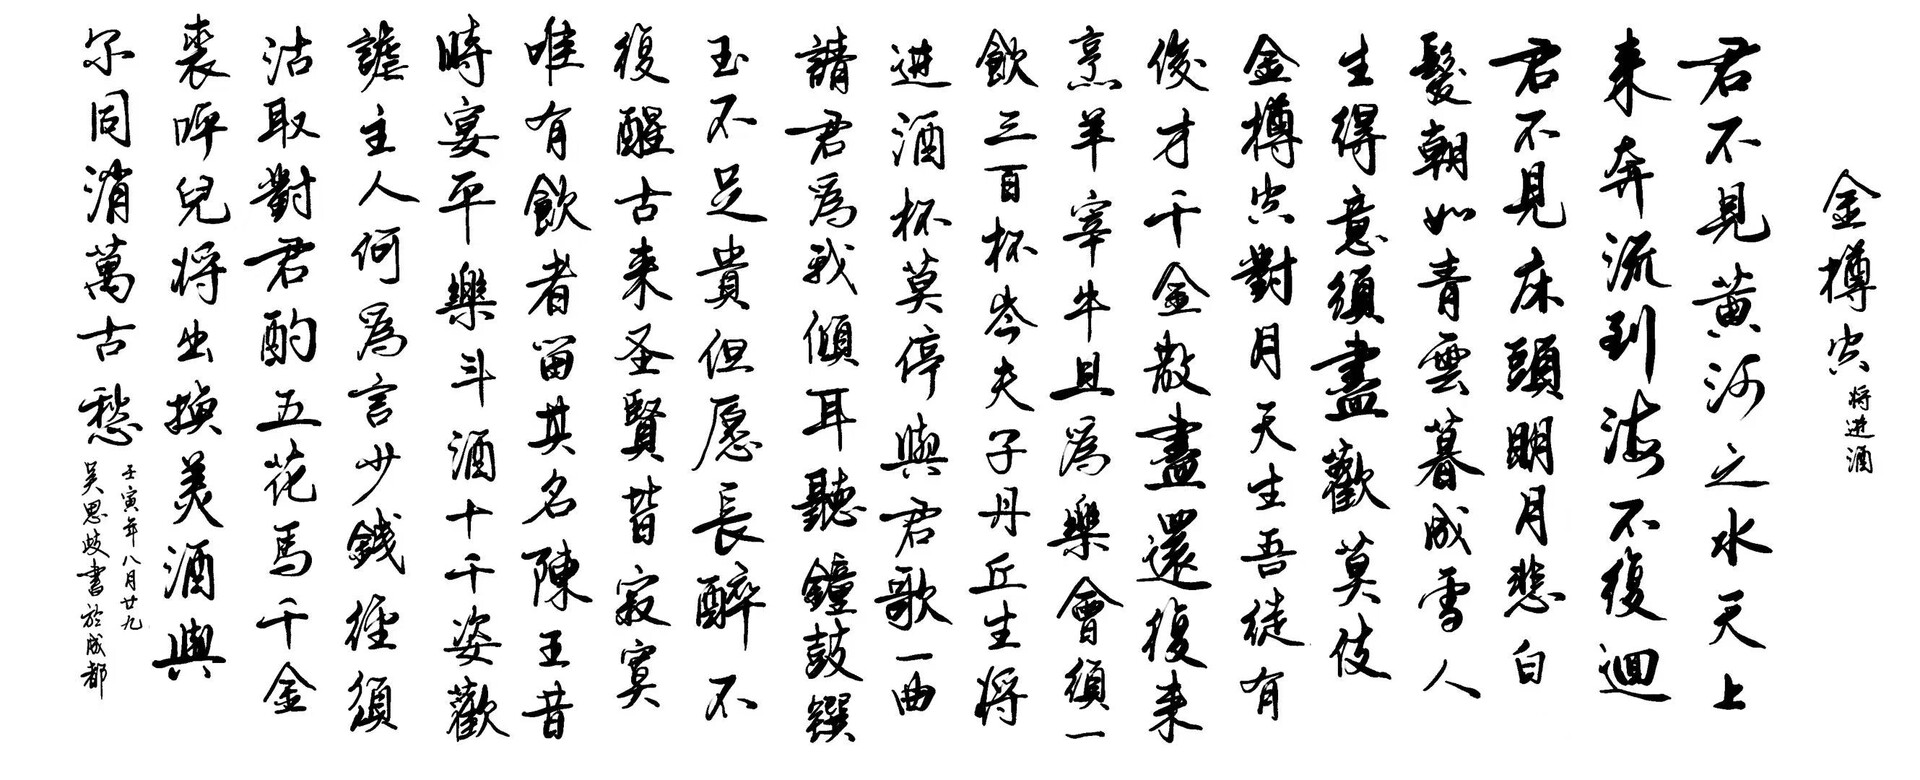 金樽空
将进酒
君不見黃河之水天上
来奔流到海不復迴
君不見床頭明月悲白
髮朝如青雲暮成雪人
生得意須盡歡莫伎
金樽空對月天生吾徒有
俊才千金散盡還復来
烹羊宰牛且為樂會須一
飲三百杯岑夫子丹丘生将
进酒杯莫停與君歌一曲
請君為我傾耳聽鐘鼓饌
玉不足貴但愿長醉不
復醒古来圣賢皆寂寞
唯有飲者留其名陳王昔
時宴平樂斗酒十千姿歡
謔主人何為言少錢徑須
沽取對君酌五花馬千金
裘呼兒将出換美酒與
尔同消萬古愁
壬寅年八月廿九
吴思歧書於成都